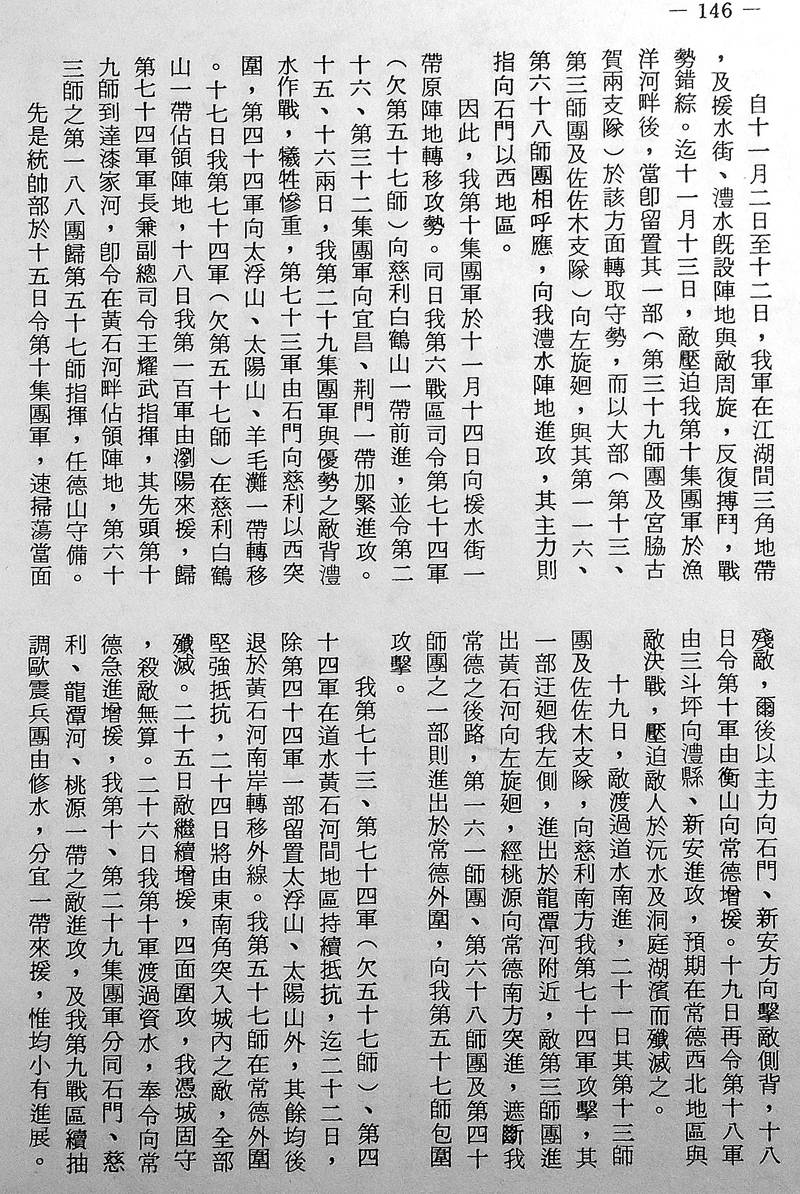 — 146 —
自十一月二日至十二日，我軍在江湖間三角地帶
，及援水街、澧水既設陣地與敵周旋，反復搏鬥，戰
勢錯綜。迄十一月十三日，敵壓迫我第十集團軍於漁
洋河畔後，當卽留置其一部（第三十九師團及宮脇古
賀兩支隊）於該方面轉取守勢，而以大部（第十三、
第三師團及佐佐木支隊）向左旋廻，與其第一一六、
第六十八師團相呼應，向我澧水陣地進攻，其主力則
指向石門以西地區。
因此，我第十集團軍於十一月十四日向援水街一
帶原陣地轉移攻勢。同日我第六戰區司令第七十四軍
（欠第五十七師）向慈利白鶴山一帶前進，並令第二
十六、第三十二集團軍向宜昌、荆門一帶加緊進攻。
十五、十六兩日，我第二十九集團軍與優勢之敵背澧
水作戰，犧牲慘重，第七十三軍由石門向慈利以西突
圍，第四十四軍向太浮山、太陽山、羊毛灘一帶轉移
。十七日我第七十四軍（欠第五十七師）在慈利白鶴
山一帶佔領陣地，十八日我第一百軍由瀏陽來援，歸
第七十四軍軍長兼副總司令王耀武指揮，其先頭第十
九師到達漆家河，卽令在黃石河畔佔領陣地，第六十
三師之第一八八團歸第五十七師指揮，任德山守備。
先是統帥部於十五日令第十集團軍，速掃蕩當面
殘敵，爾後以主力向石門、新安方向擊敵側背，十八
日令第十軍由衡山向常德增援。十九日再令第十八軍
由三斗坪向澧縣、新安進攻，預期在常德西北地區與
敵決戰，壓迫敵人於沅水及洞庭湖濱而殲滅之。
十九日，敵渡過道水南進，二十一日其第十三師
團及佐佐木支隊，向慈利南方我第七十四軍攻擊，其
一部迂廻我左側，進出於龍潭河附近，敵第三師團進
出黃石河向左旋廻，經桃源向常德南方突進，遮斷我
常德之後路，第一六一師團、第六十八師團及第四十
師團之一部則進出於常德外圍，向我第五十七師包圍
攻擊。
我第七十三、第七十四軍（欠五十七師）、第四
十四軍在道水黃石河間地區持續抵抗，迄二十二日，
除第四十四軍一部留置太浮山、太陽山外，其餘均後
退於黃石河南岸轉移外線。我第五十七師在常德外圍
堅強抵抗，二十四日將由東南角突入城內之敵，全部
殲滅。二十五日敵繼續增援，四面圍攻，我憑城固守
，殺敵無算。二十六日我第十軍渡過資水，奉令向常
德急進增援，我第十、第二十九集團軍分同石門、慈
利、龍潭河、桃源一帶之敵進攻，及我第九戰區續抽
調歐震兵團由修水，分宜一帶來援，惟均小有進展。